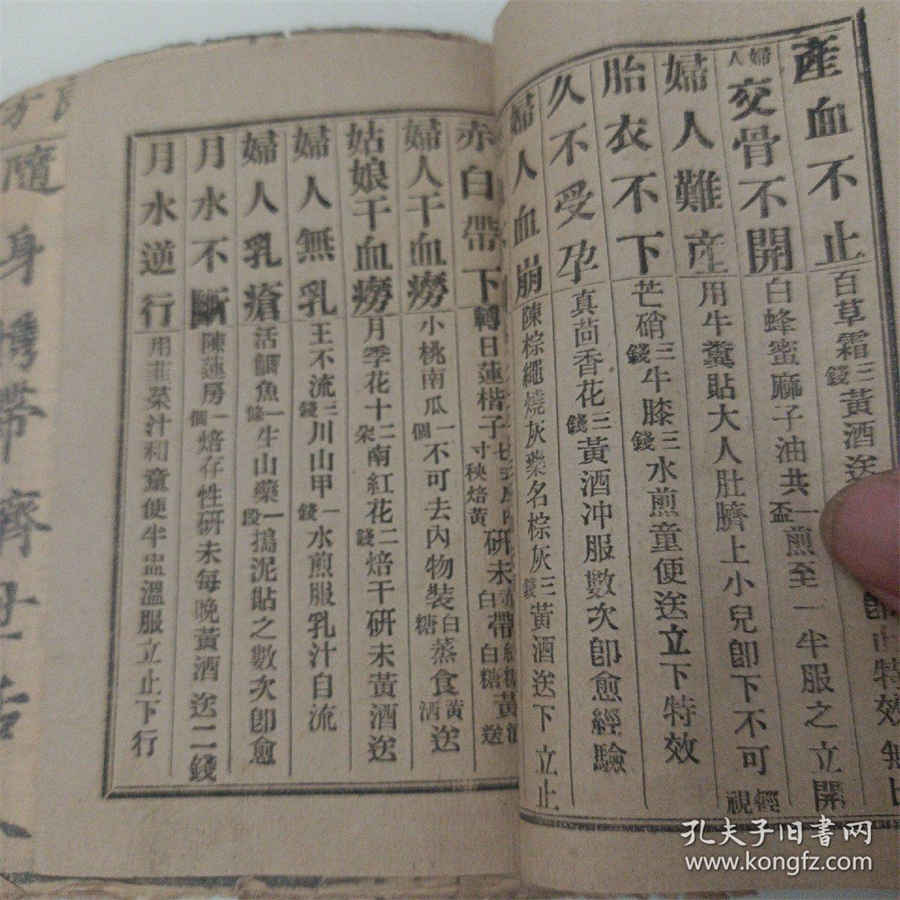 產血不止 百草霜三錢黃酒送 特效
婦人交骨不開 白蜂蜜麻子油共一盃煎至一半服之立開
婦人難產 用牛糞貼大人肚臍上小兒卽下不可輕視
胎衣不下 芒硝三錢牛膝三錢水煎童便送立下特效
久不受孕 真茴香花三錢黃酒冲服數次卽愈經驗
婦人血崩 陳棕繩燒灰藥名棕灰三錢黃酒送下立止
赤白帶下 轉日蓮楷子七寸秧焙黃研末 白帶白糖 送
婦人干血癆 小桃南瓜一個不可去內物裝白糖蒸食黃酒送
姑娘干血癆 月季花十二朵南紅花二錢焙干研末黃酒送
婦人無乳 王不流三錢川山甲一錢水煎服乳汁自流
婦人乳瘡 活鯽魚一條牛山藥一段搗泥貼之數次卽愈
月水不斷 陳蓮房一個焙存性研末每晚黃酒送二錢
月水逆行 用韭菜汁和童便半盅溫服立止下行
方
隨身攜帶濟世活人
孔夫子旧書网
www.kongfz.com